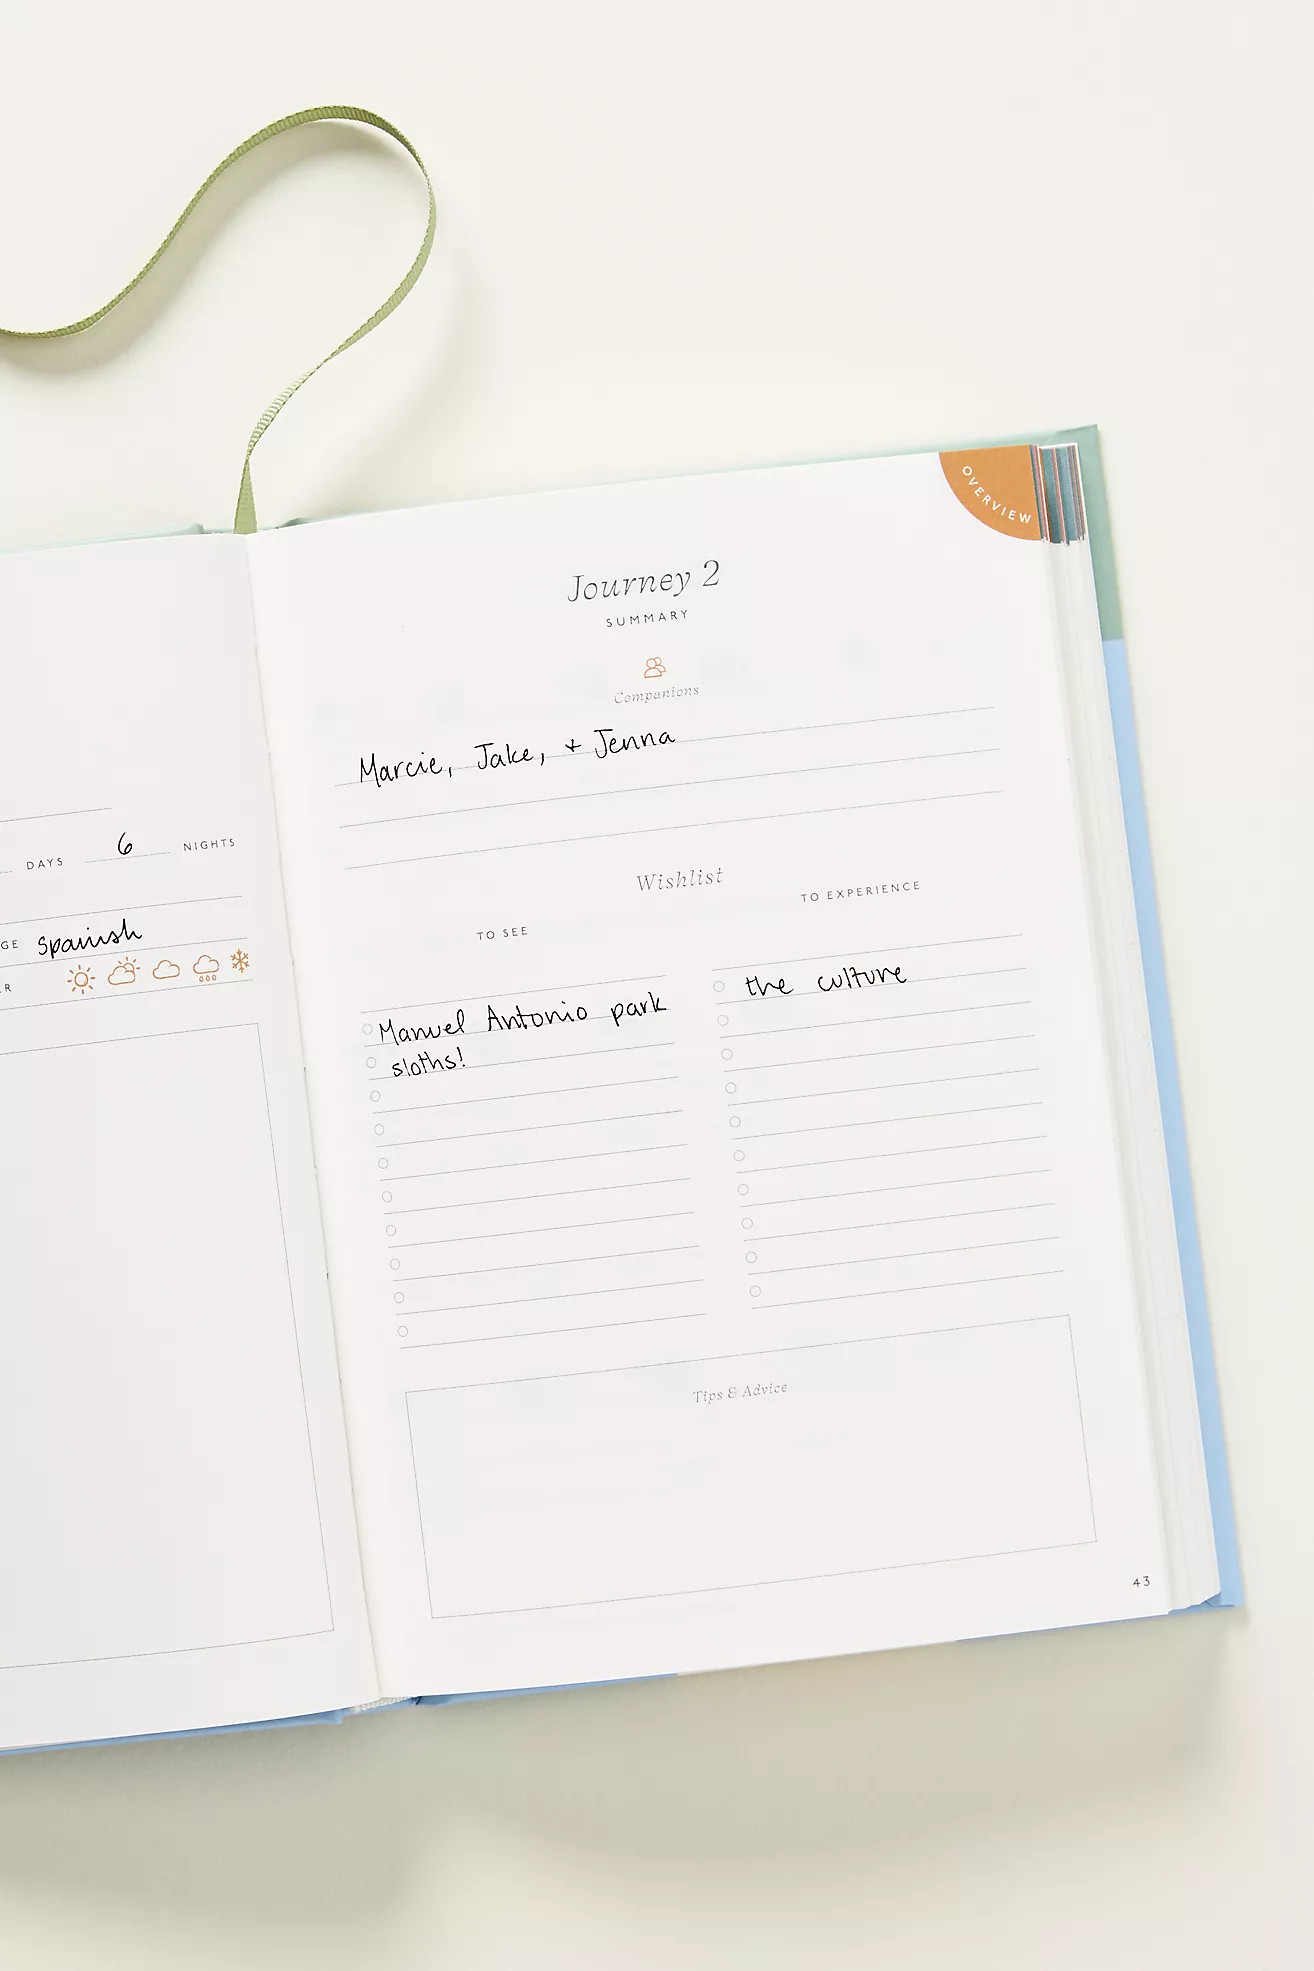 OVERVIEW
Journey 2
SUMMARY
Companions
Marcie, Jake, + Jenna
DAYS 6 NIGHTS
GE Spanish
R
Wishlist
TO SEE
Manuel Antonio park
sloths!
TO EXPERIENCE
the culture
Tips & Advice
43